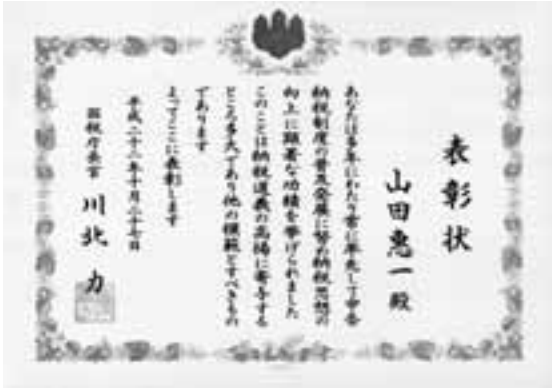 表彰状
山田惠一殿
あなたは多年にわたり常に率先して申告
納税制度の普及発展に努め納税思想の
向上に顕著な功績を挙げられました
このことは納税道義の高揚に寄与する
ところ多大であり他の模範とすべきもの
であります
よってここに表彰します
平成二十二年十月二十七日
国税庁長官 川北力